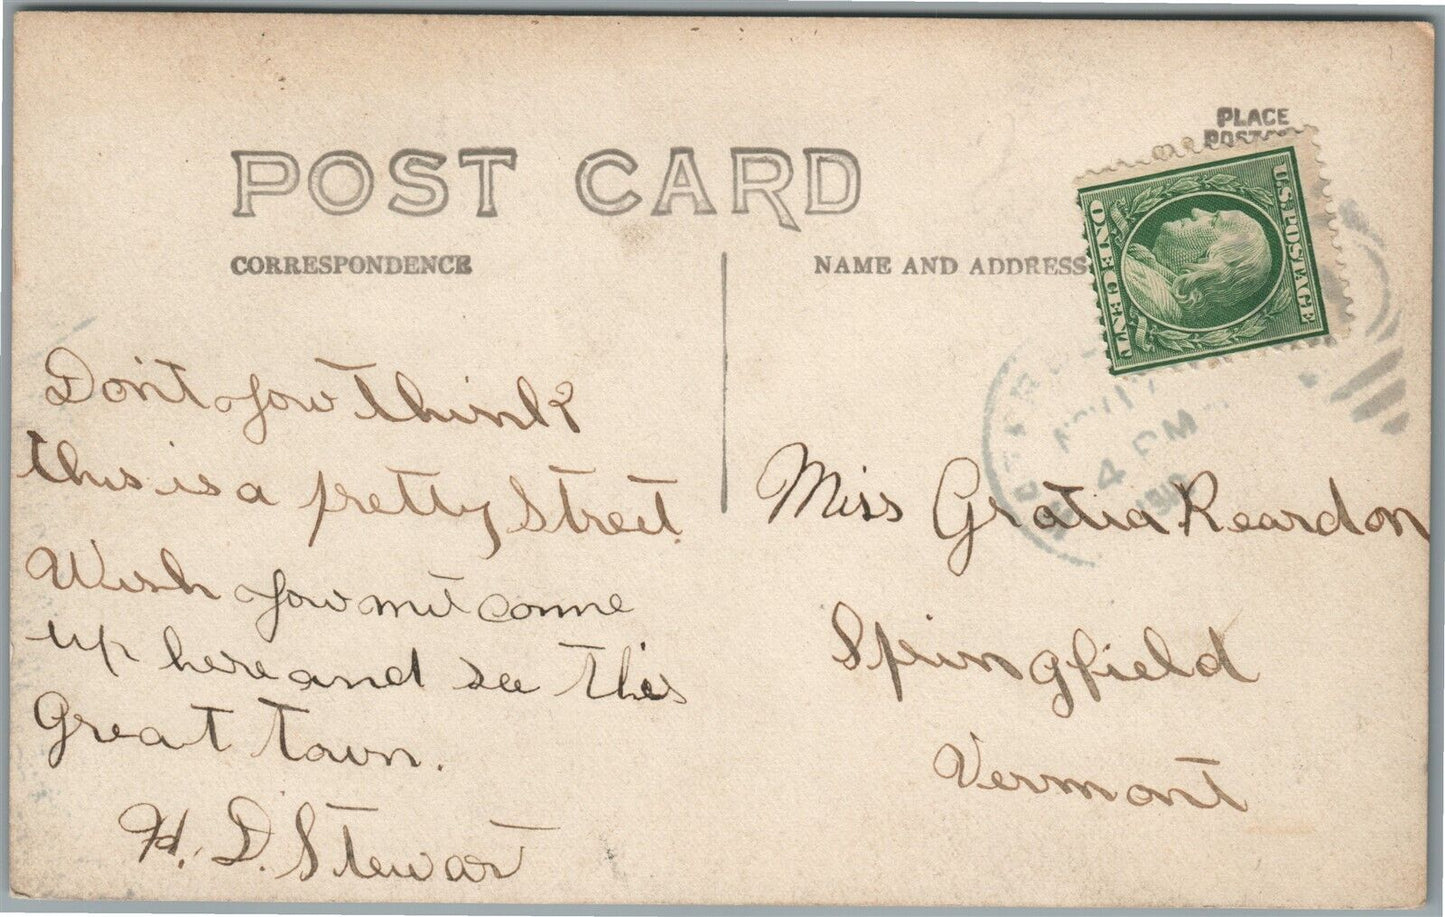 POST CARD
CORRESPONDENCE
NAME AND ADDRESS
PLACE
U.S. POSTAGE
ONE CENT
4 PM
Don't you think
this is a pretty Street.
Wish you mit come
up here and see this
Great Town.
H. D. Stewart
Miss Gratia Reardon
Springfield
Vermont